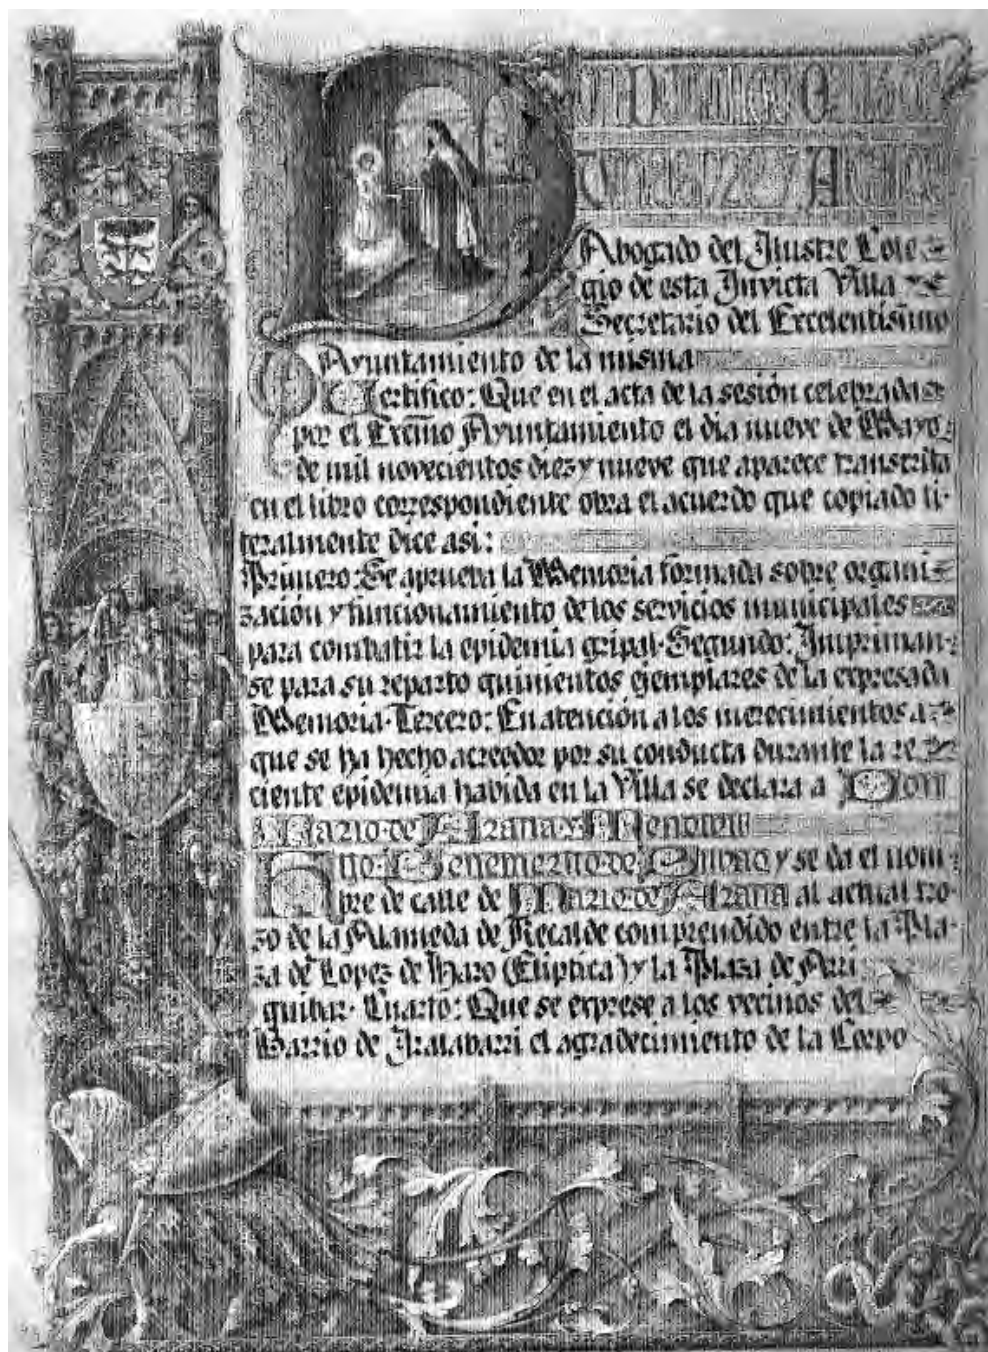 Abogado del Ilustre Cole
gio de esta Invicta Villa
Secretario del Excelentisimo
Ayuntamiento de la misma
Certifico: Que en el acta de la sesión celebrada
por el Excmo Ayuntamiento el dia nueve de Mayo
de mil novecientos diez y nueve que aparece transcrita
en el libro correspondiente obra el acuerdo que copiado li-
teralmente dice asi:
Primero: Se aprueba la Memoria formada sobre organi
zación y funcionamiento de los servicios municipales
para combatir la epidemia gripal. Segundo: Impriman-
se para su reparto quinientos ejemplares de la expresada
Memoria. Tercero: En atención a los merecimientos a
que se ha hecho acreedor por su conducta durante la re
ciente epidemia habida en la Villa se declara a Don
Mario de Arana y
Benemerito de Bilbao y se da el nom
bre de calle de Mario de Arana al actual tro-
zo de la Alameda de Recalde comprendido entre la Pla-
za de Lopez de Haro (Eliptica) y la Plaza de Arri
quibar. Cuarto: Que se exprese a los vecinos del
Barrio de Iralabarri el agradecimiento de la Corpo